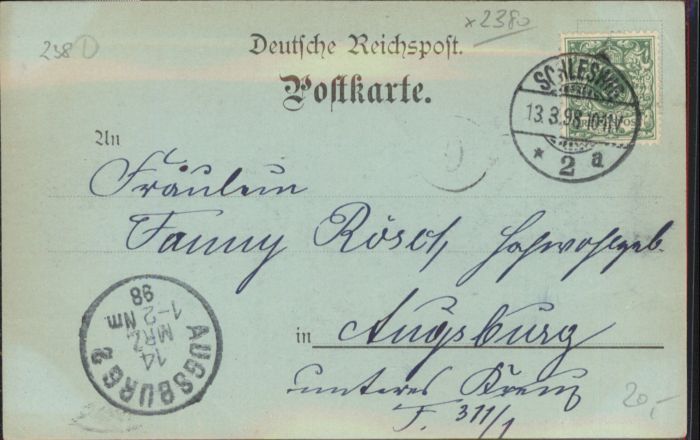 x 2380
238
Deutsche Reichspost.
Postkarte.
SCHLESWIG
13.3.98.10-11V
* 2 a
An
Fräulein
Fanny Rösch, Hochwohlgeb.
in Augsburg
unteres Kreuz
F. 311/1
AUGSBURG 2
14
MRZ
1-2 Nm.
98
20,-